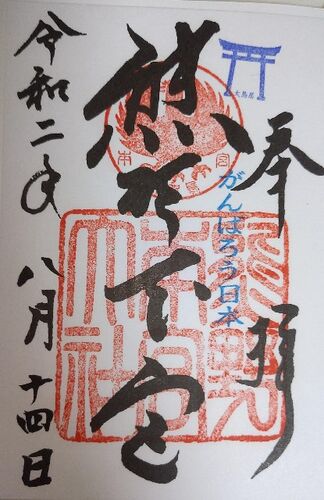 奉拝
大鳥居
がんばろう日本
熊野本宮
熊野本宮大社
令和二年八月十四日